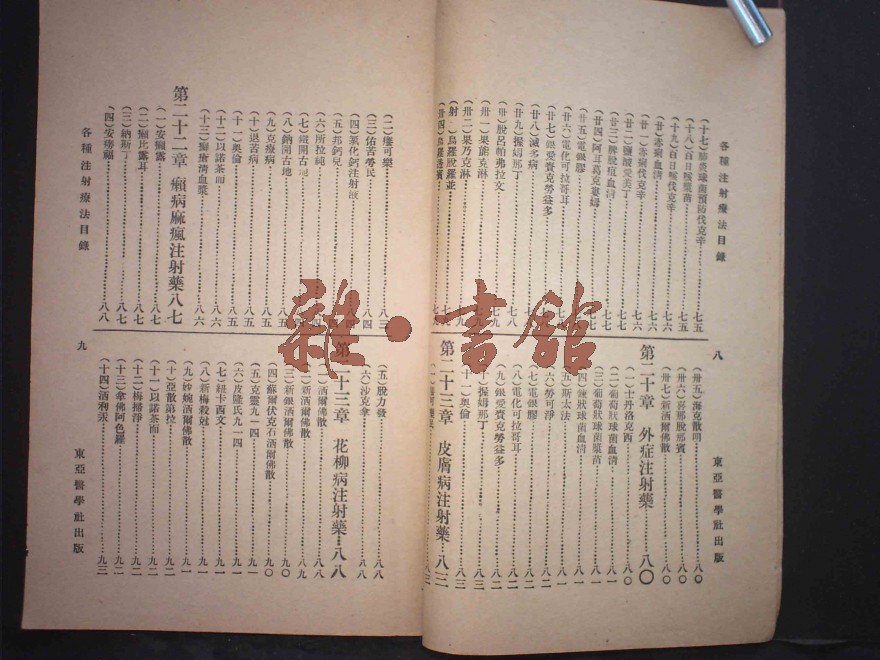 各種注射療法目錄
八
東亞醫學社出版
(十七)肺炎球菌預防伐克辛……七五
(十八)百日咳漿苗……七五
(十九)百日咳伐克辛……七六
(廿)赤痢血清……七六
(廿一)赤痢伐克辛……七六
(廿二)鹽酸愛美丁……七
(廿三)脾脫疽血清……七
(廿四)阿耳葛克婁姆……七
(廿五)電銀膠
(廿六)電化可拉哥耳
(廿七)銀愛賚克勞益多
(廿八)滅多病……七八
(廿九)握姆那丁
(卅)脫呂帕弗拉文……七九
(卅一)果能克淋
(卅二)果乃克淋……九
(卅五)海克散明……八〇
(卅六)喜那脫那賓……八〇
(卅七)新酒爾佛散……八〇
第二十章 外症注射藥……八〇
(一)士丹洛克西……八〇
(二)葡萄狀球菌血清……八一
(三)葡萄狀球菌漿苗……八一
(四)鍊狀球菌血清……八一
(五)斯太法……八一
(六)勞可淨……八二
(七)電銀膠……八二
(八)電化可拉哥耳……八二
(九)銀愛賚克勞益多……八二
(十)握姆那丁……八三
(十一)奧倫……八三
第二十三章 皮膚病注射藥……八三
各種注射療法目錄
九
東亞醫學社出版
(二)瘻可樂……八三
(三)佑苦勞民……八四
(四)氯化鈣注射液……八四
(五)邦鈣兒
(六)所拉純
(七)鐵開古地
(八)鈉開古地……八五
(九)克療病……八五
(十)退苦病……八五
(十一)奧倫……八五
(十二)以諾荼而……八六
(十三)獅唐淸血漿……八六
第二十二章 癩病麻瘋注射藥八七
(一)安癩露……八七
(二)癩比露耳……八七
(三)納斯丁……八七
(四)安瘍福……八八
(五)脫力發……八八
(六)沙克拿……八八
第二十三章 花柳病注射藥……八八
(一)酒爾佛散……八八
(二)新酒爾佛散……八九
(三)新銀酒爾佛散……九〇
(四)蘇爾伏克石酒爾佛散……九〇
(五)克靈九一四……九一
(六)皮隆氏九一四……九一
(七)紐卡西文……九一
(八)新梅殺尅……九一
(九)妙婉酒爾佛散……九一
(十)亞散第拉……九二
(十一)以諾荼而……九二
(十二)梅掃淨……九二
(十三)拿佛阿色羅……九二
(十四)酒利汞……九三
雜·書館